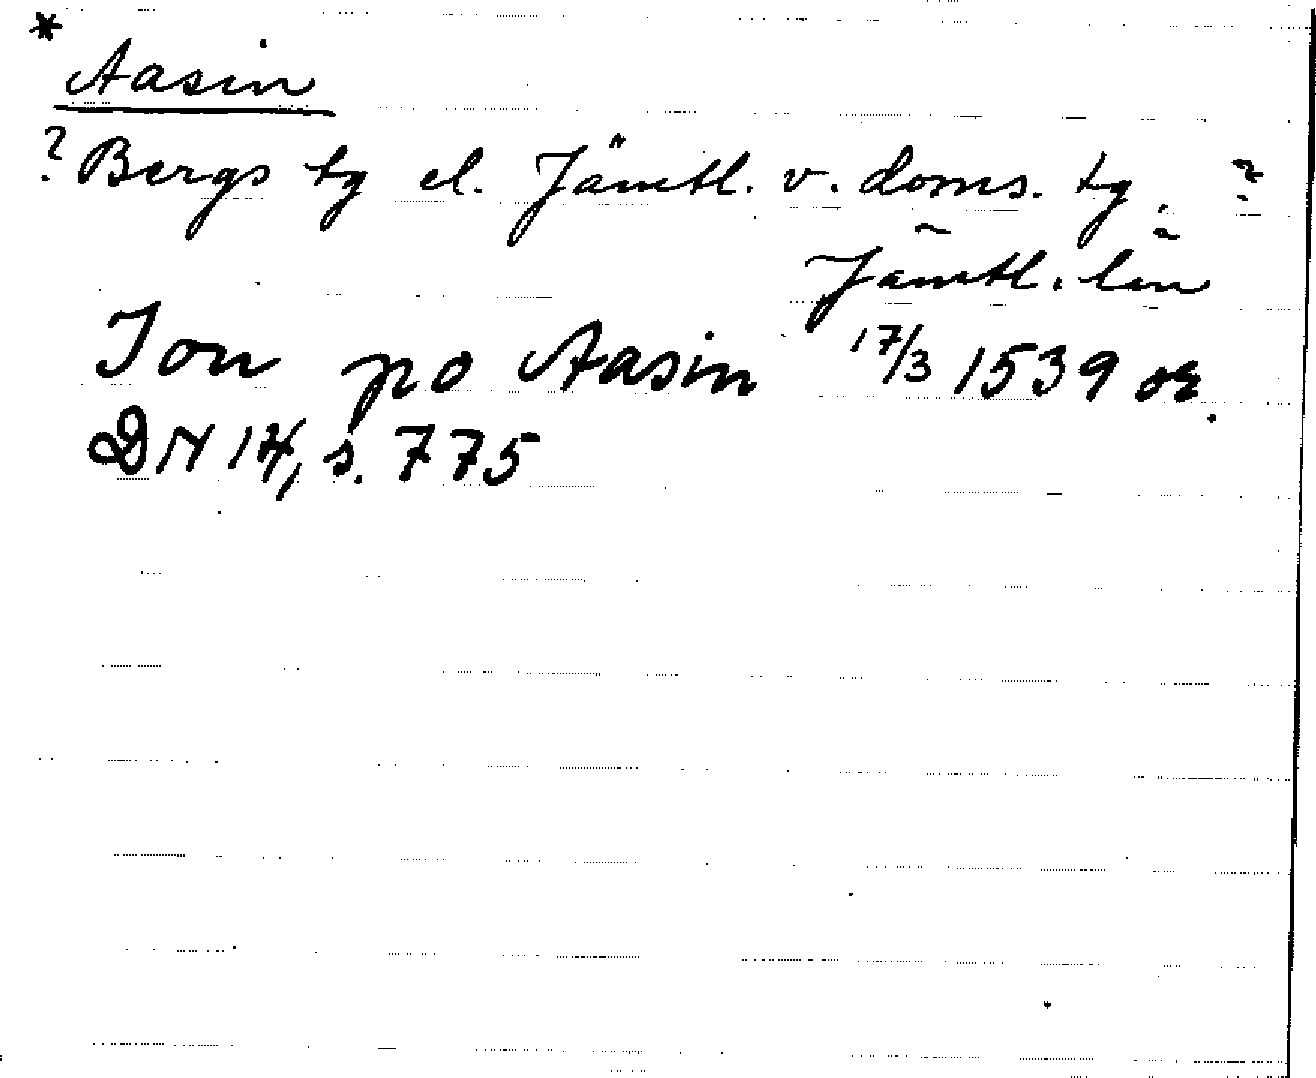 *
Aasin
? Bergs tg el. Jämtl. v. doms. tg. ?
Jämtl. län
Jon po Aasin 17/3 1539 or.
DN 14, s. 775